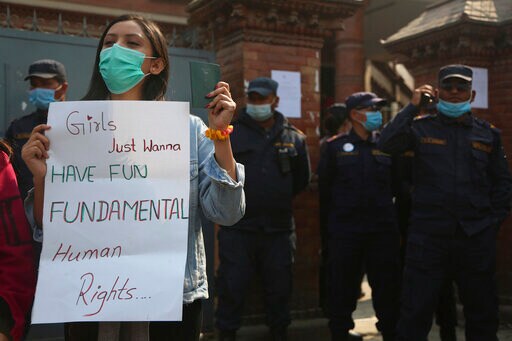 Girls
Just Wanna
HAVE FUN
FUNDAMENTAL
Human
Rights....